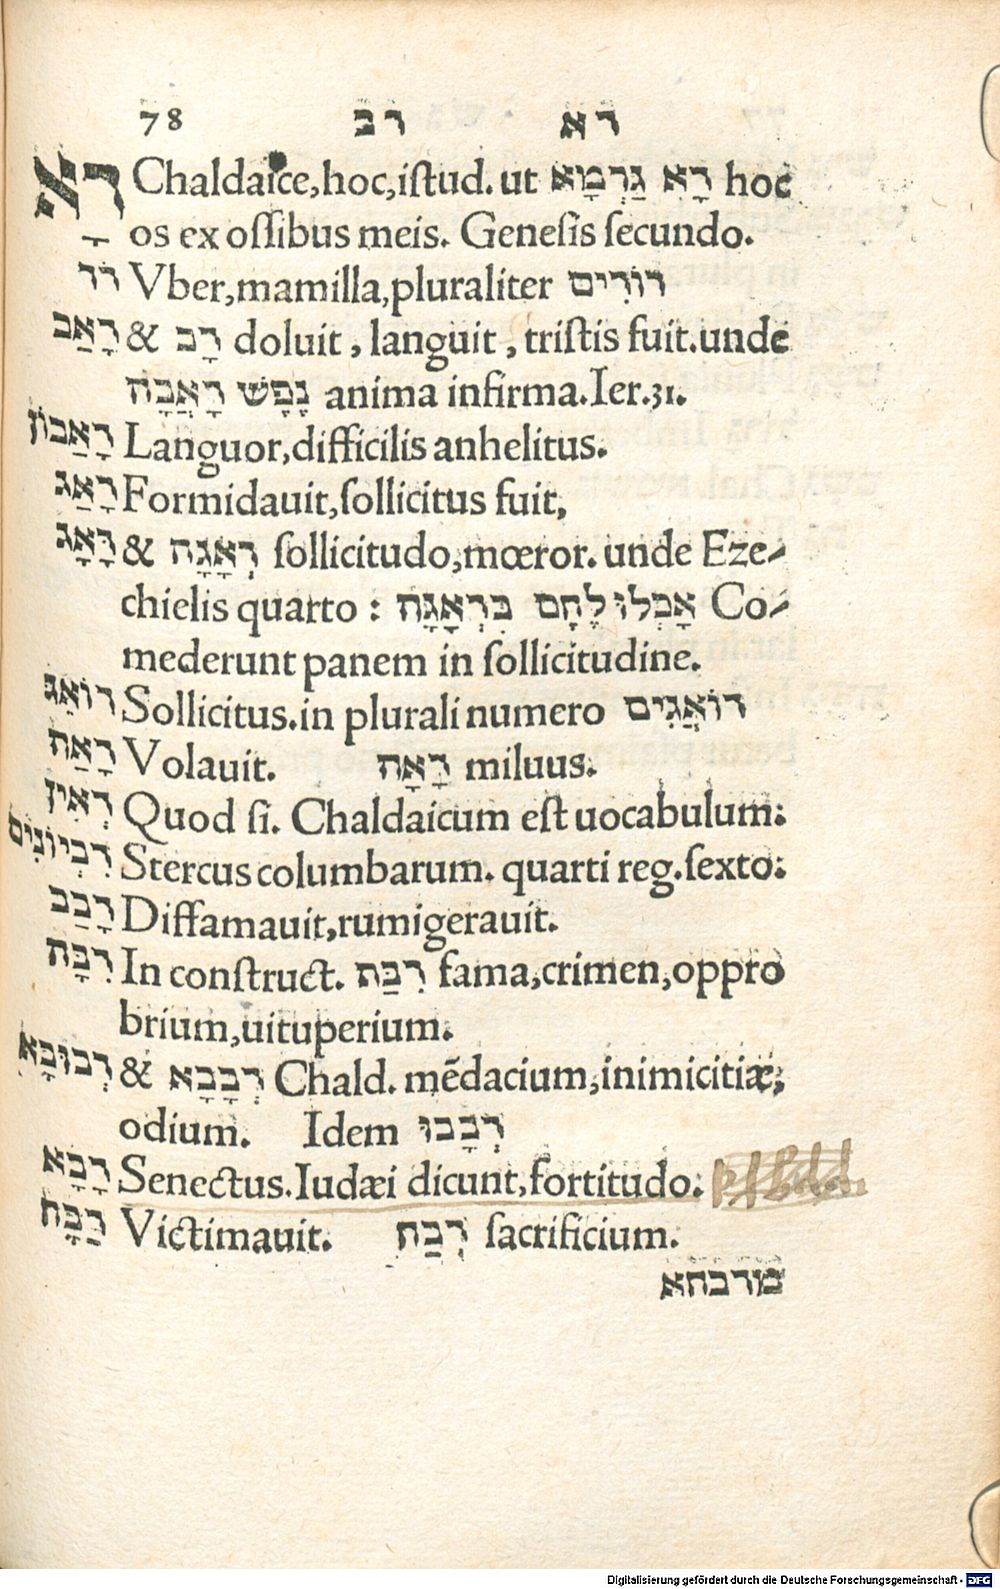 78 דב דא
דָא Chaldaice, hoc, istud. ut דָא גַּרְמָא hoc
os ex ossibus meis. Genesis secundo.
דד Vber, mamilla, pluraliter דּוֹדִים
דָאַב & דָב doluit, languit, tristis fuit. unde
נֶפֶשׁ דָאֲבָה anima infirma. Ier. 31.
דָאַבוֹן Languor, difficilis anhelitus.
דָאַג Formidauit, sollicitus fuit,
דָּאָג & דְאָגָה sollicitudo, mœror. unde Eze-
chielis quarto: אָכְלוּ לֶחֶם בִּדְאָגָה Co-
mederunt panem in sollicitudine.
דוֹאֵג Sollicitus. in plurali numero דוֹאֲגִים
דָאַה Volauit. דָאָה miluus.
דְאִין Quod si. Chaldaicum est uocabulum:
דִּבְיוֹנִים Stercus columbarum. quarti reg. sexto:
דָבַב Diffamauit, rumigerauit.
דִבָּה In construct. דִבַּת fama, crimen, oppro
brium, uituperium.
דְבוּבָא & דְבָבָא Chald. mēdacium, inimicitiæ,
odium. Idem דְבָבוּ
דָבָא Senectus. Iudæi dicunt, fortitudo.
דַבָּח Victimauit. דְבַח sacrificium.
מדבחא
Digitalisierung gefördert durch die Deutsche Forschungsgemeinschaft - DFG